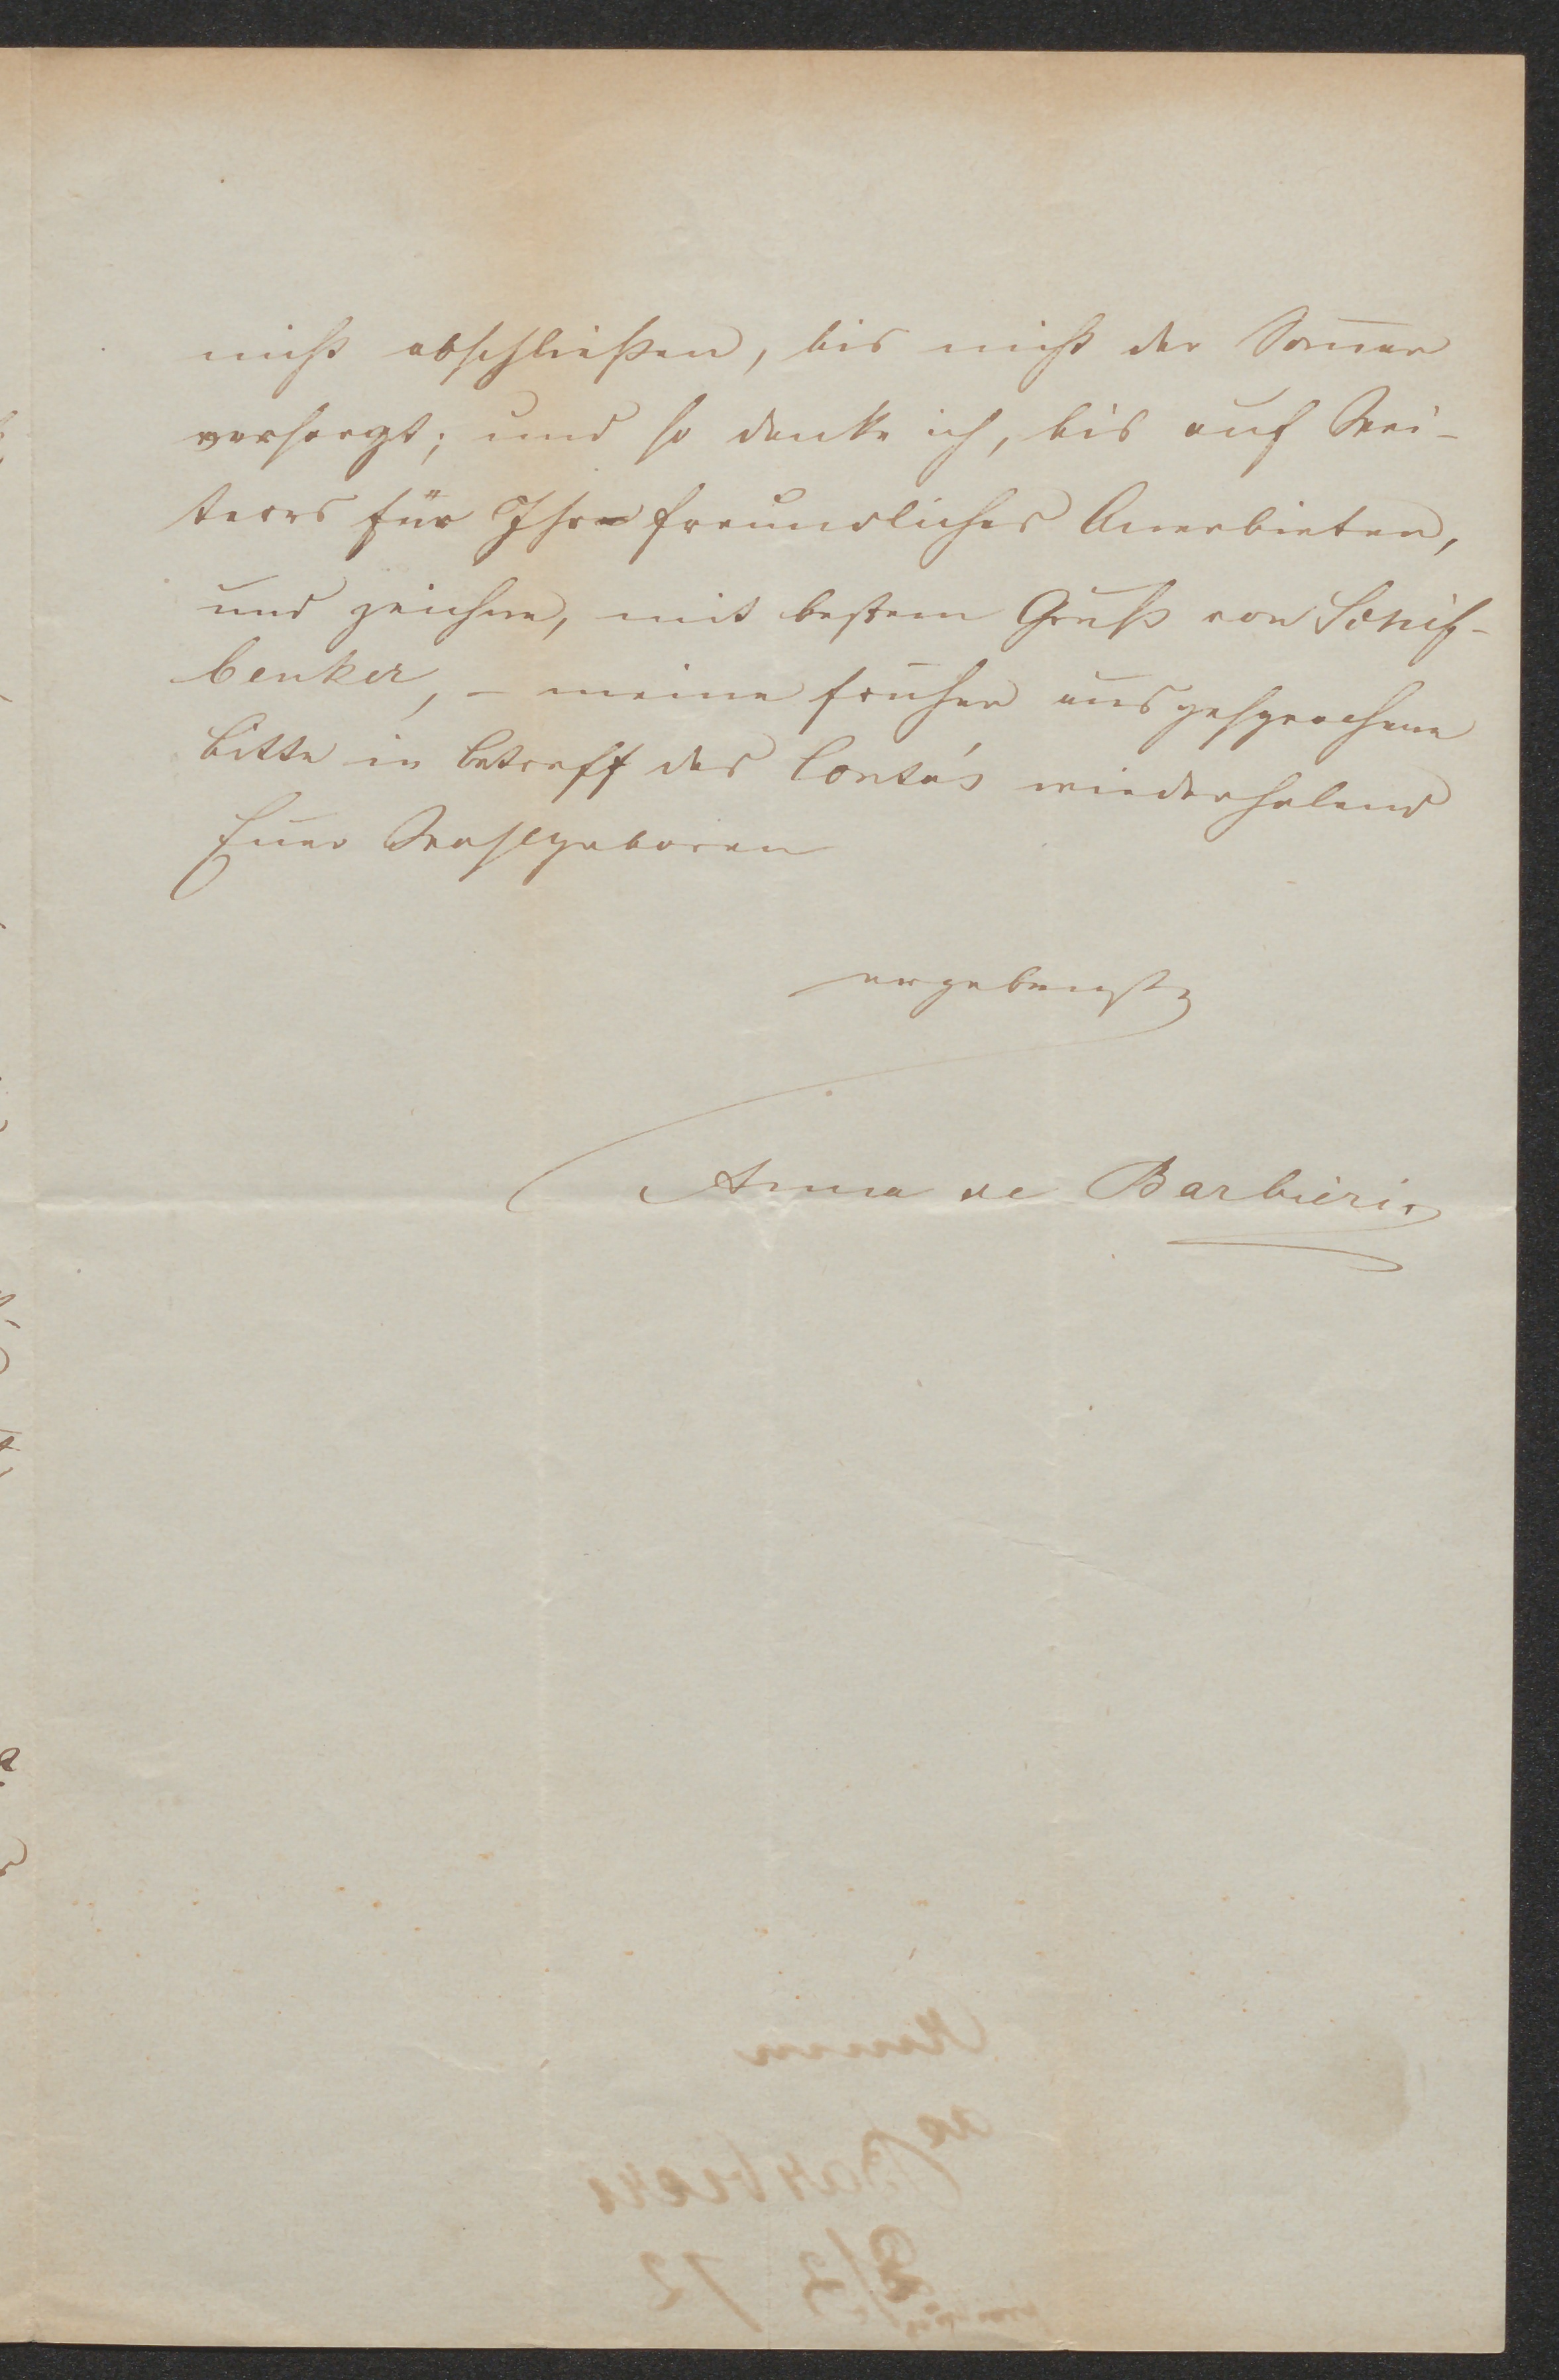 nicht abschließen, bis nicht der Som̅er
versorgt; und so danke ich, bis auf Wei-
teres für Ihr freundliches Anerbieten,
und zeichne, mit bestem Gruß von Schif-
benker, – meine früher ausgesprochene
Bitte in Betreff des Conto's wiederholend
Euer Wohlgeboren
ergebenste
Anna de Barbieri.
Anna
de
Barbieri
2/3 72